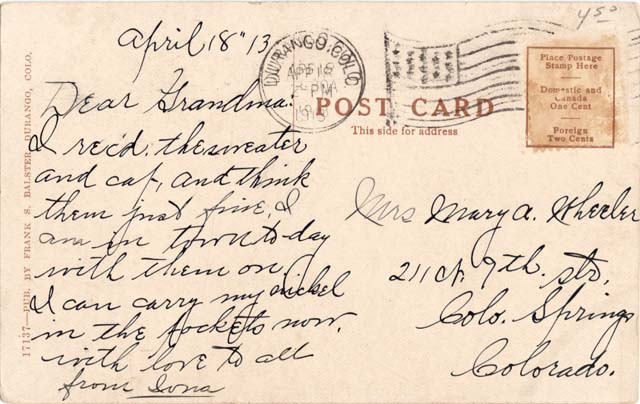 April 18" 13
Dear Grandma:
I rec'd. the sweater
and cap, and think
them just fine, I
am in town to-day
with them on,
I can carry my nickel
in the pockets now.
with love to all
from Iona
DURANGO, COLO
APR 18
PM
1913
450
Place Postage
Stamp Here
Domestic and
Canada
One Cent
Foreign
Two Cents
POST CARD
This side for address
Mrs Mary A. Wheeler
211 N. 9th. str,
Colo. Springs
Colorado.
17137—PUB. BY FRANK S. BALSTER, DURANGO, COLO.